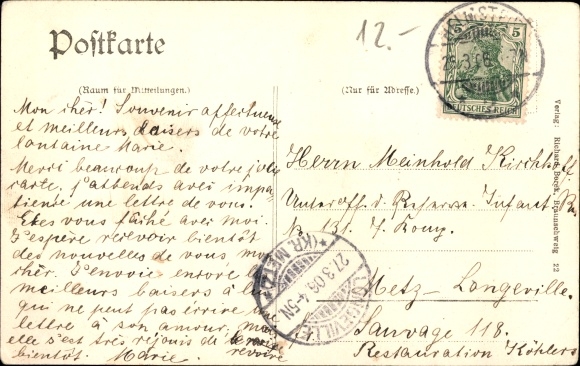 Postkarte
12.-
(Raum für Mitteilungen.)
(Nur für Adresse.)
Mon chèr! Souvenir affectueuse
et meilleurs baisers de votre
lontaine Marie.
Merci beaucoup de votre jolie
carte. J'attends avec impa-
tiense une lettre de vous.
Etes vous fâché avec moi.
J'espère recevoir bientôt
des nouvelles de vous, mon
chèr. J'envoie encore les
meilleurs baisers à
qui ne peut pas écrire une
lettre à son amour, mais
elle s'est très rejouis de le
bientôt. Marie. revoire
5 5
DEUTSCHES REICH
Herrn Meinhold Kirchhoff
Unteroff. d. Reserve Infant. R.
No 131. 7. Komp.
Metz-Longeville.
Sauvage 118.
Restauration Köhlers
LONGEVILLE
27.3.08. 4-5N
*(KR. METZ)*
Verlag: Richard Borek, Braunschweig 22